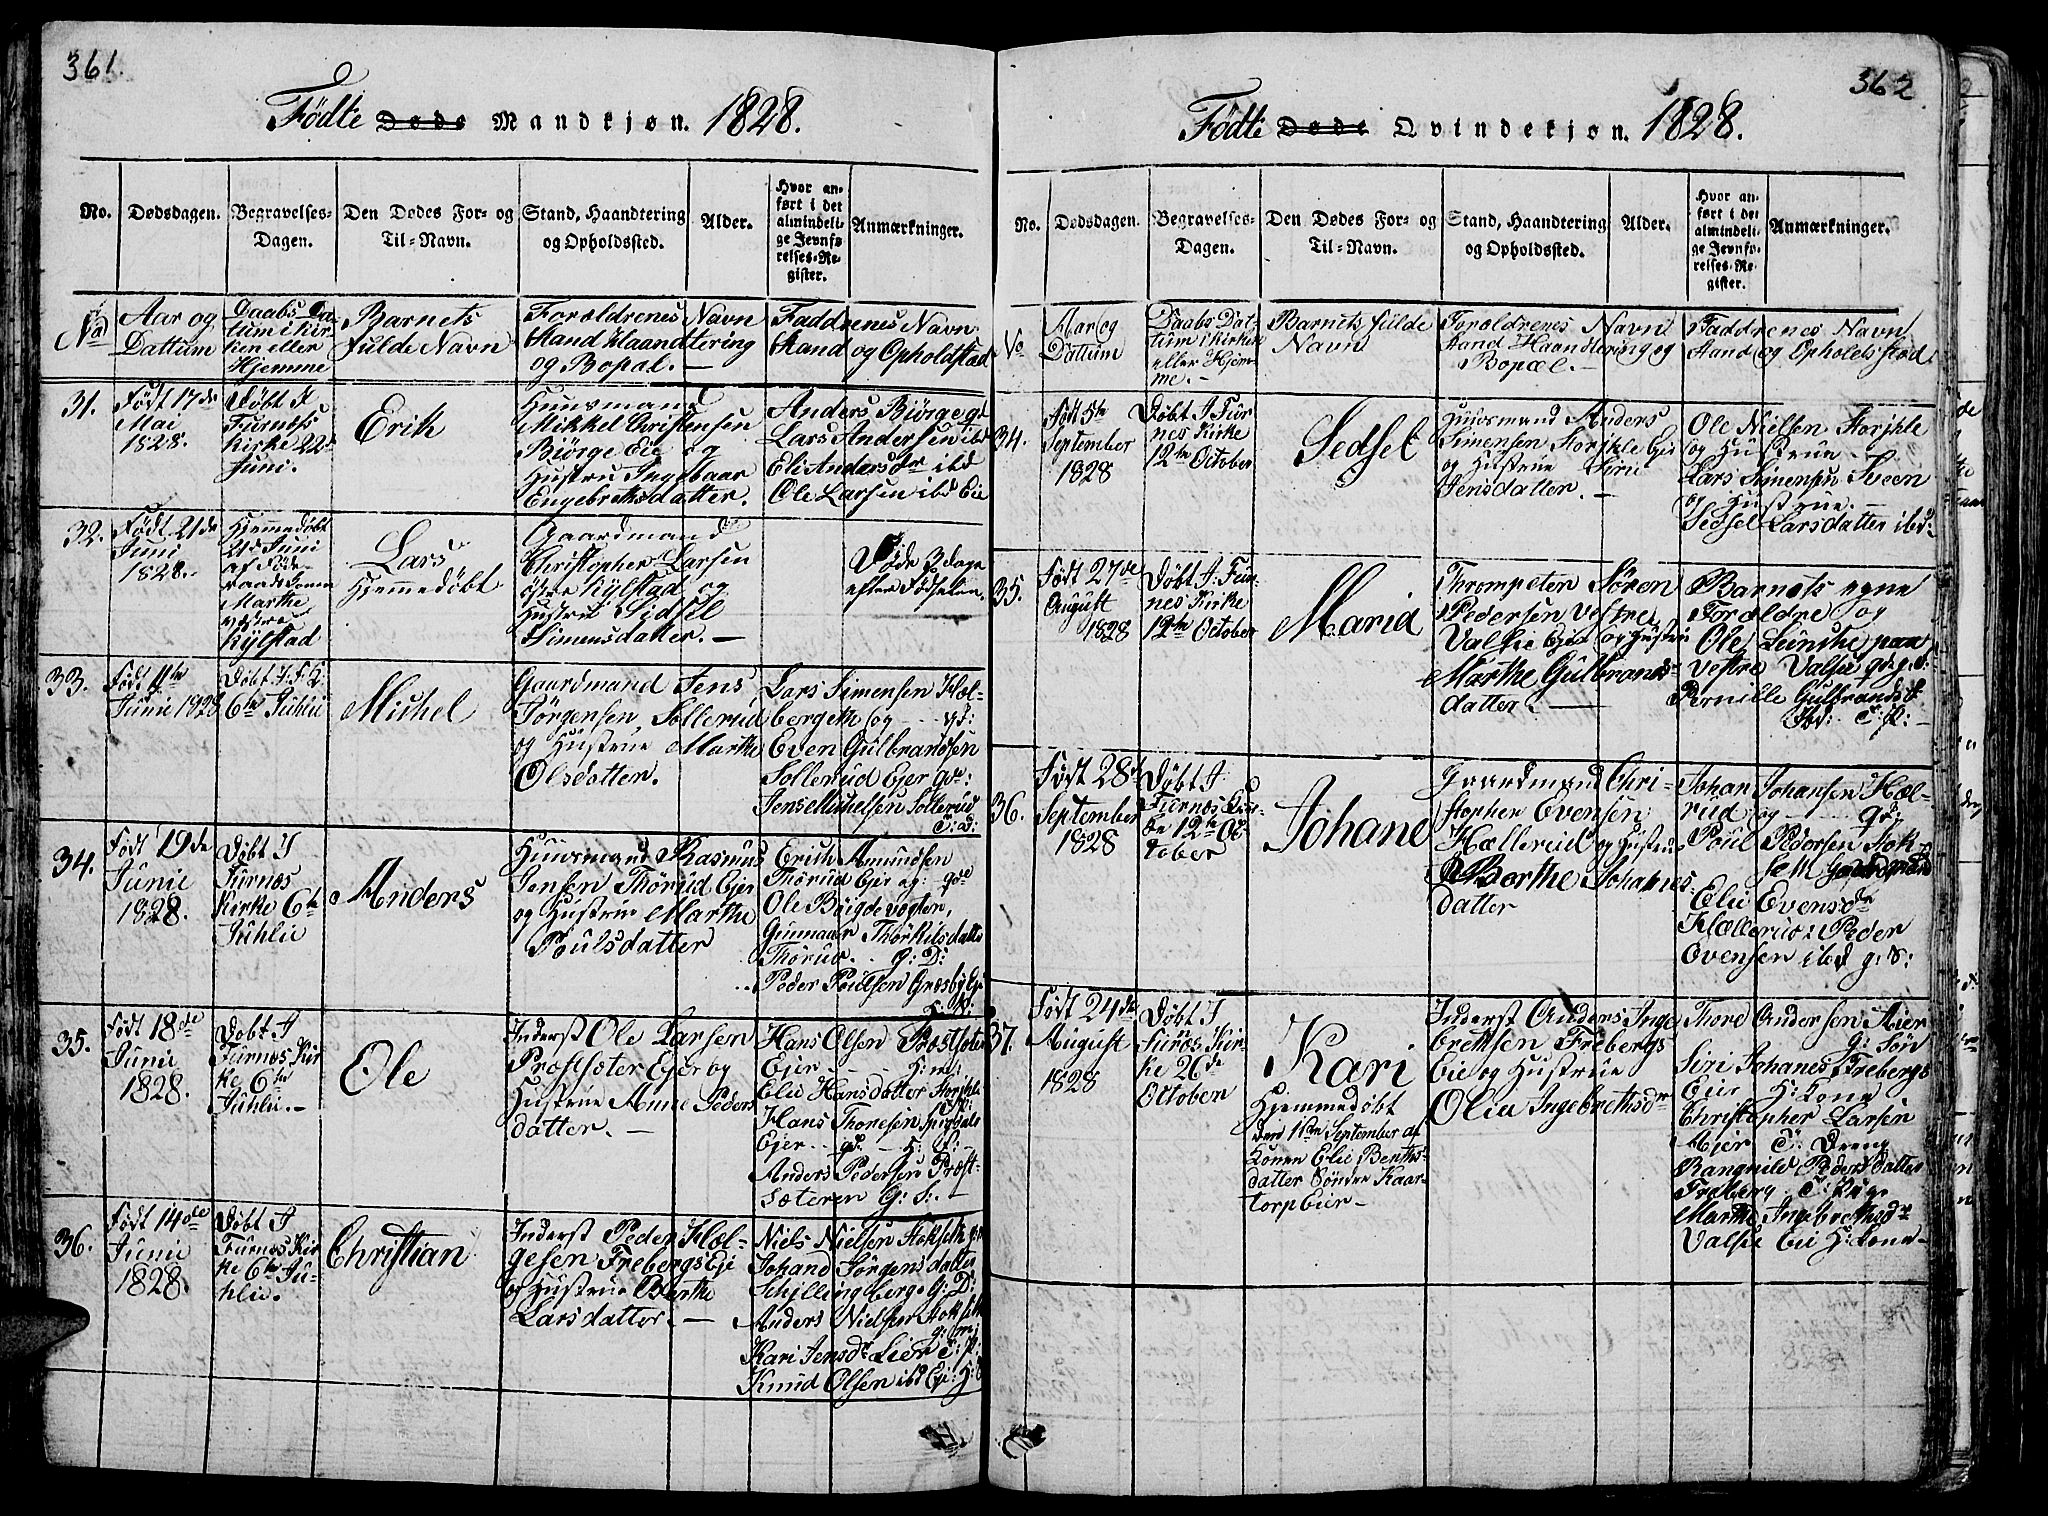 361.
Fødte Døde Mandkjøn. 1828.
No.
Dødsdagen.
Begravelses-
Dagen.
Den Dødes For- og
Til-Navn.
Stand, Haandtering
og Opholdssted.
Alder.
Hvor an-
ført i det
almindeli-
ge Jevnfø-
relses-Re-
gister.
Anmærkninger.
No
Aar og
Dattum
Daabs Da-
tum i kir-
ken eller
Hjemme
Barnets
fulde Navn
Foroldrenes Navn
Stand Haandtering
og Bopæl. —
Faddrenes Navn
Stand og Opholdstæd
31.
Født 17de
Mai
1828.
Døbt I
Furnæss
Kirke 22de
Juni.
Erik
Huusmand
Mikkel Christensen
Biörge Eie og
Hustru Ingebaar
Engebrethsdatter.
Anders Biörge gd
Lars Andersen ibd
Eli Andersdr ibd
Ole Larsen ibd Eie
32.
Født 21de
Juni
1828.
Hjemmedøbt
21de Juni
af Jorde-
Marthe
vestre
Kylstad
Lars
Hjemmedøbt
Gaardmand
Christopher Larsen
østre Kylstad og
Hustru Sidsel
Simensdatter. —
Døde 3 dage
efter Fødselen.
33.
Født 11te
Junii 1828
Døbt I: F: K:
6te Juhlii
Michel
Gaardmand Jens
Jørgensen Sollerud
og Hustrue Marthe
Olsdatter.
Lars Simensen Hæl-
berget og - - - gd:
Even Gulbrandsen
Sollerud Ejer
Jens Michelsen Sollerud
34.
Født 19de
Junii
1828.
Døbt I
Furnæs
Kirke 6te
Juhlii
Anders
Huusmand Rasmus
Jensen Thørud Ejer
og Hustrue Marthe
Poulsdatter
Erich Amundsen
Thørud Ejer
Ole Böigdevogten,
Gunnaar Thorkilsdatter
Thørud. g: D:
Peder Poulsen Græsby Eje
35.
Født 18de
Junii
1828.
Døbt I
Furnæs Kir-
ke 6te
Juhlii. —
Ole
Inderst Ole Larsen
Præstsæter Ejer og
Hustrue Anne Peders
datter. —
Hans Olsen Præstsæter
Ejer - - -
Elie Hansdatter
Hans Thoresen
Ejer
Anders Pedersen Præst-
sæteren G: S: —
36.
Født 14de
Junii
1828.
Døbt I
Furnæs Kir-
ke 6te Ju-
hlii.
Christian
Inderst Peder Hæl-
gesen Frebergs Eje
og Hustrue Berthe
Larsdatter. —
Niels Nielsen Stokseth
Johand Jørgensdatter
Schillingberg G: D:
Anders Nielsen Stokseth
Kari Jensdr Lier T: P:
Knud Olsen ibd Ej:
362
Fødte Døde Qvindekjøn. 1828.
No.
Dødsdagen.
Begravelses-
Dagen.
Den Dødes For- og
Til-Navn.
Stand, Haandtering
og Opholdssted.
Alder.
Hvor an-
ført i det
almindeli-
ge Jevnfø-
relses-Re-
gister.
Anmærkninger.
No
Aar og
Dattum
Daabs Dat-
tum i Kirken
eller Hjem-
me. -
Barnets fulde
Navn
Foroldrenes Navn
Stand Haandtering og
Bopæl. —
Faddrenes Navn
Stand og Opholdsstæd.
34.
Født 5te
September
1828
Døbt I Fur-
nes Kirke
12te October
Sedsel
Huusmand Anders
Simensen Storihle Eie
og Hustrue Siri
Jensdatter. —
Ole Nielsen Storihle
og Hustrue. -
Lars Simensen Sveen
og Hustrue. —
Sedsel Larsdatter ibd.
35.
Født 27de
August
1828
Døbt I: Fur-
nes Kirke
12te October
Maria
Thrompeter Sören
Pedersen Vestre
Valsie Eje og Hustru
Marthe Gulbrans-
datter. —
Barnets egne
Forældre og
Ole paa
vestre Valsie
Pernille Gulbrandsd
ibd: T: P: -
36.
Født 28de
September
1828
Døbt I
Furnes Kir-
ke 12te Oc-
tober
Johane
Gaardmand Chri-
stopher Evensen
Hællerud og Hustrue
Berthe Johannes
datter
Johan Johansen Hæl-
rud og - - - gd.
Poul Pedersen Stok-
seth
Elie Evensdr
Hællerud. Peder
Ovensen ibd g: S:
37.
Født 24de
August
1828
Døbt I
Furnæs Kir-
ke 26de
October
Kari
Hjemmedøbt
den 11te September af
Konen Elie Benths-
datter Søndre Kaar-
torp Eier -
Inderst Anders Inge
brethsen Frebergs
Eie og Hustrue
Olia Ingebrethsdr
Thore Andersen Aier
g: Søn
Siri Johanes Frebergs
Eier H: Kone -
Christopher Larsen
Aier T: Dreng
Rangnild Pedersdatter
Freberg T: Pige
Marthe Ingebrethsdr
Valsie Eie H: Kone -